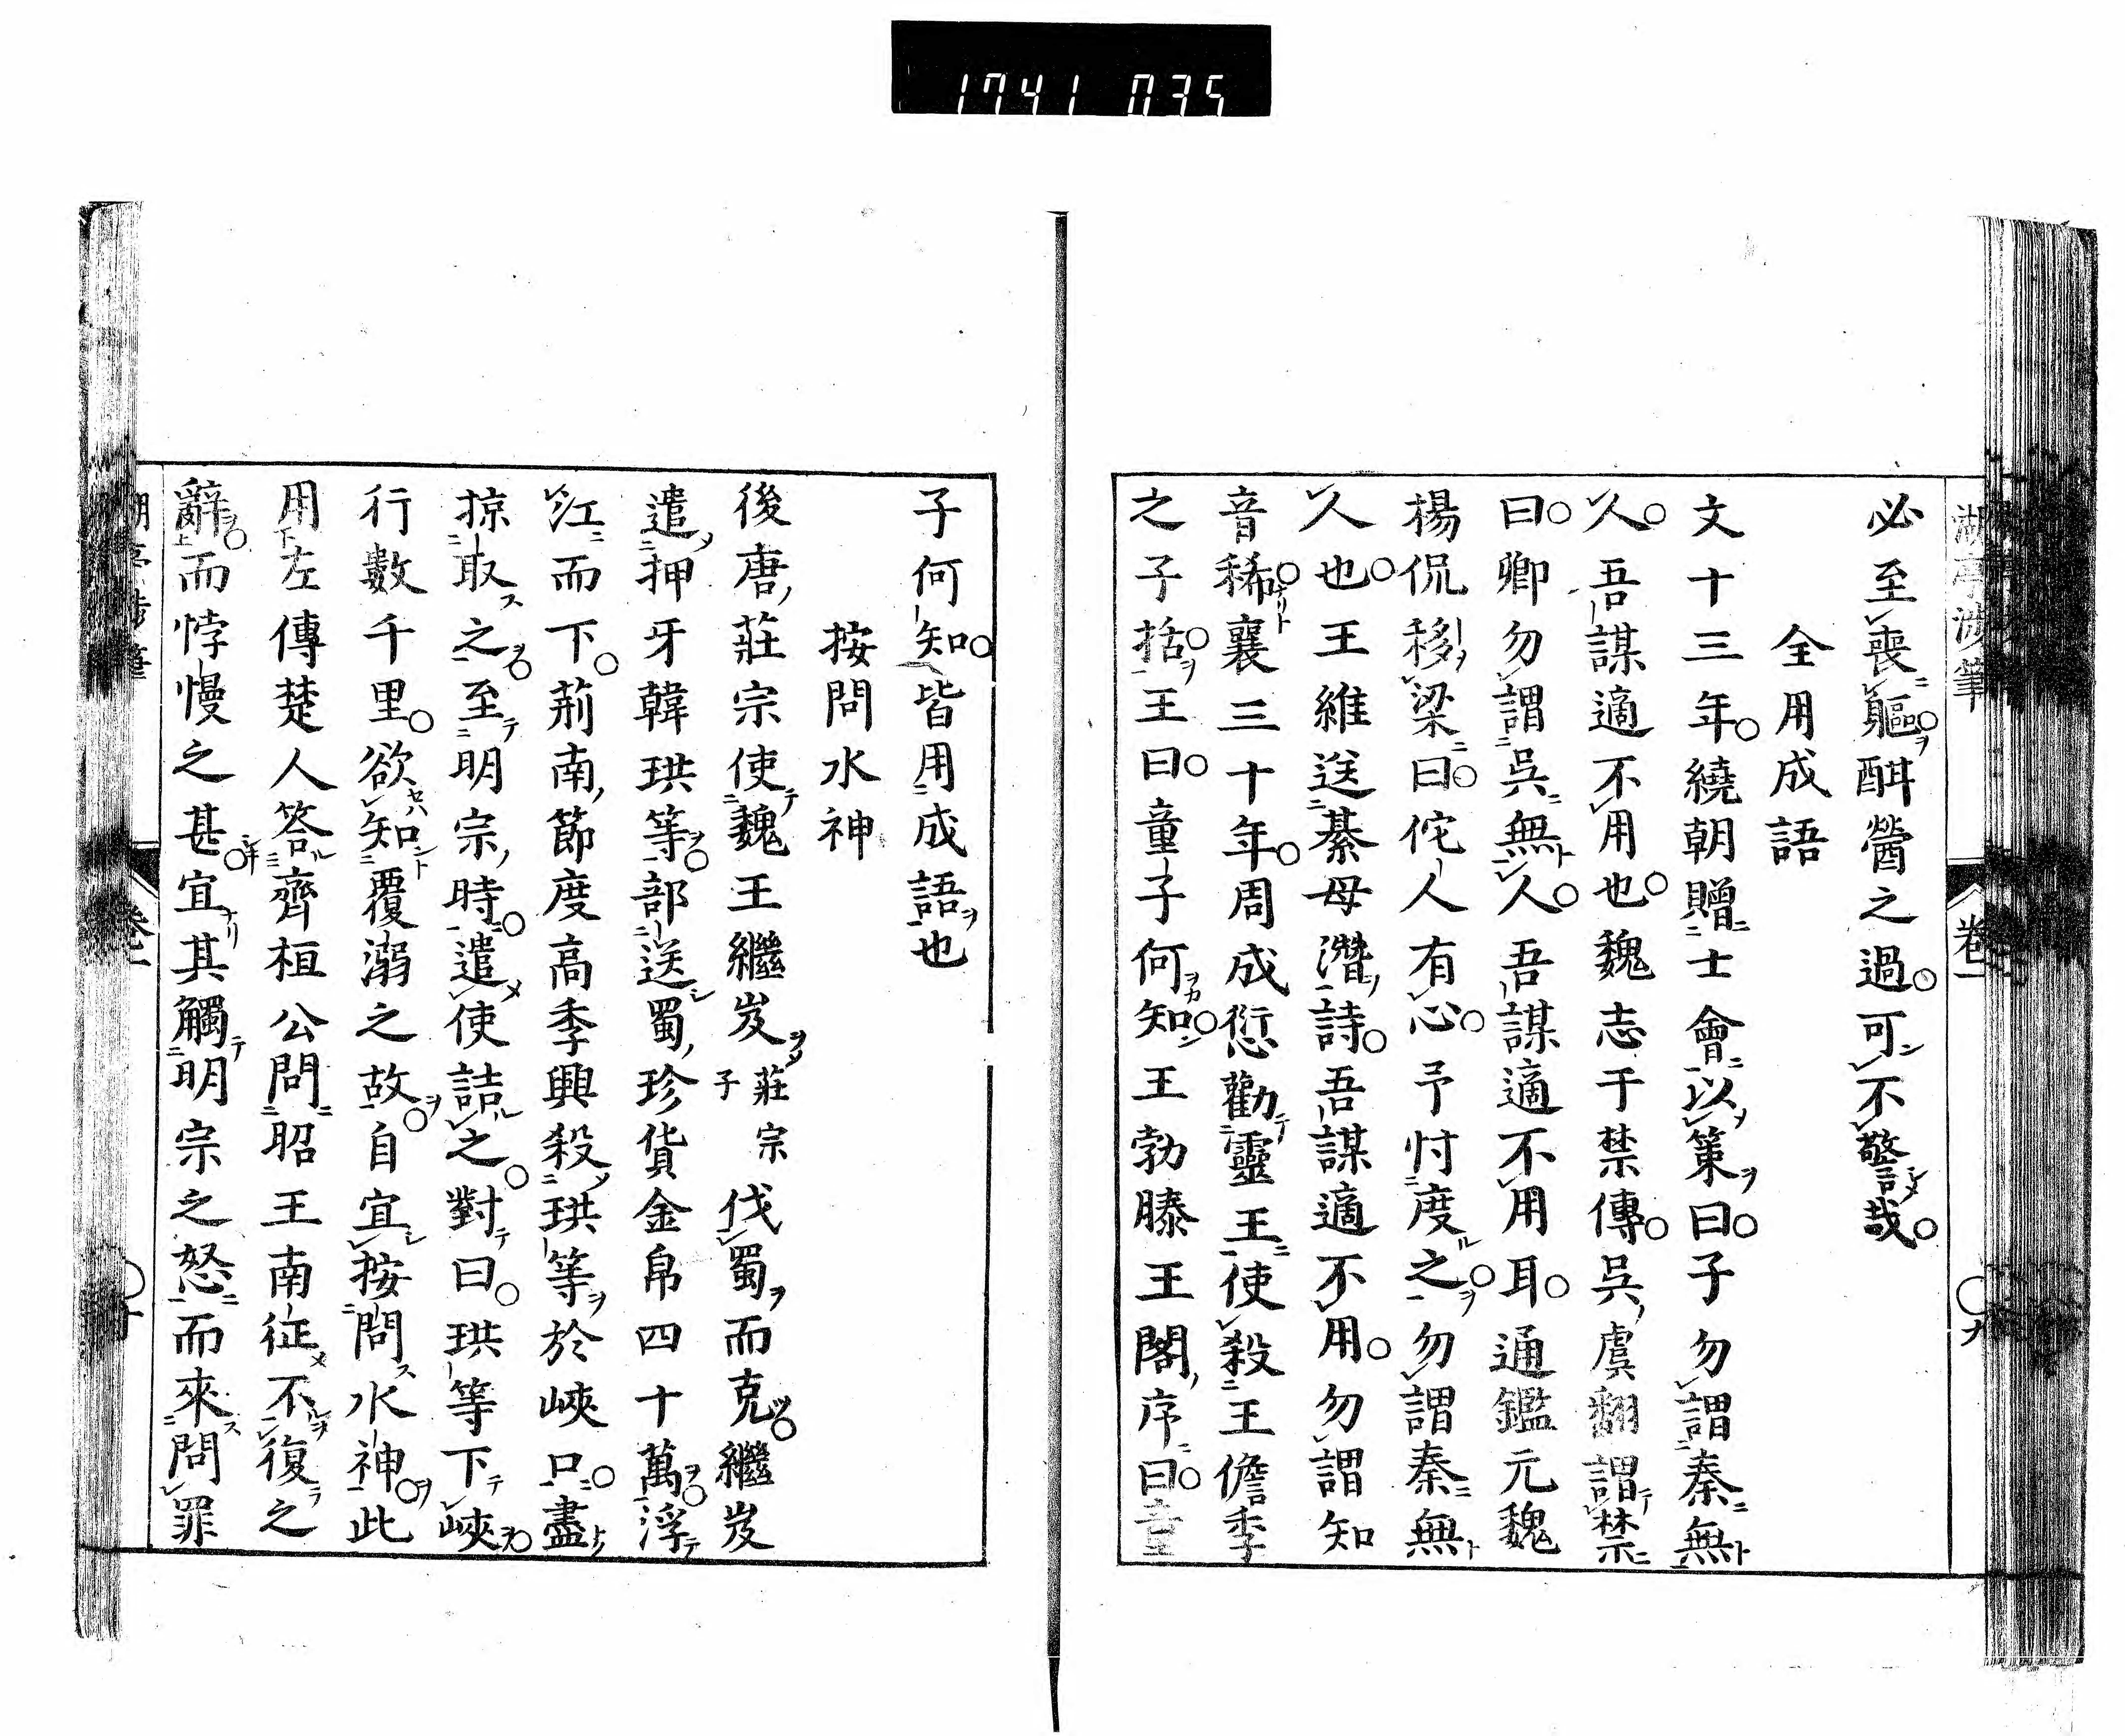 1741 035
湖亭涉筆
卷一
〇九
必至喪軀酗醟之過可不警哉
全用成語
文十三年繞朝贈士會以策曰子勿謂秦無
人吾謀適不用也魏志于禁傳吳虞翻謂禁
曰卿勿謂吳無人吾謀適不用耳通鑑元魏
楊侃移梁曰佗人有心予忖度之勿謂秦無
人也王維送綦毋潛詩吾謀適不用勿謂知
音稀襄三十年周成愆勸靈王使殺王儋季
之子括王曰童子何知王勃滕王閣序曰童
子何知皆用成語也
按問水神
後唐莊宗使魏王繼岌莊宗子伐蜀而克繼岌
遣押牙韓珙等部送蜀珍貨金帛四十萬浮
江而下荊南節度高季興殺珙等於峽口盡
掠取之至明宗時遣使詰之對曰珙等下峽
行數千里欲知覆溺之故自宜按問水神此
用左傳楚人答齊桓公問昭王南征不復之
辭而悖慢之甚宜其觸明宗之怒而來問罪
卷一
〇十